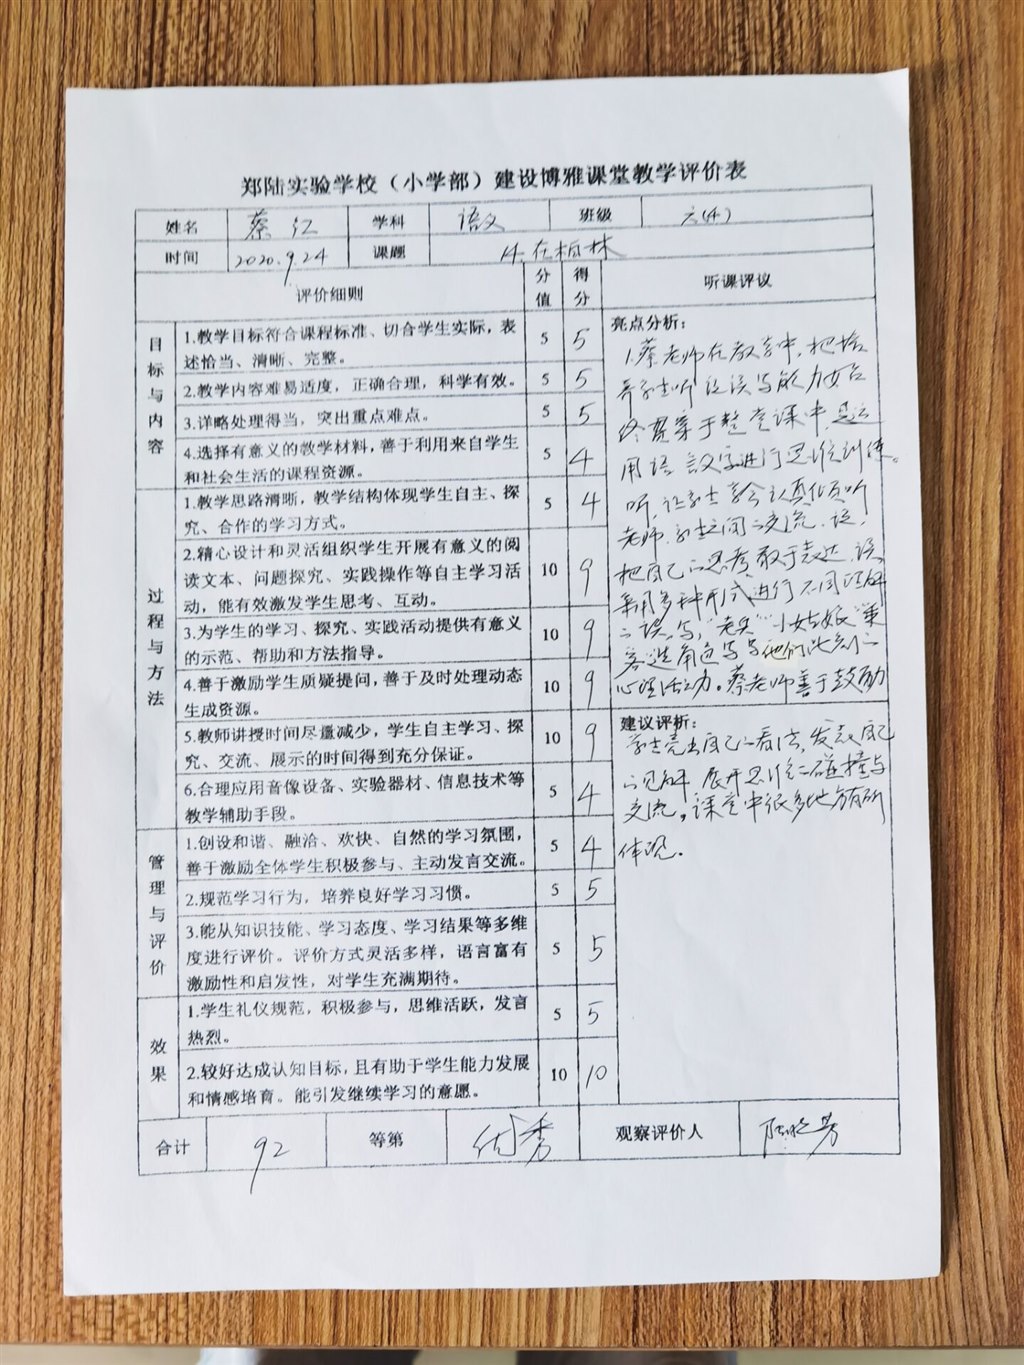 郑陆实验学校（小学部）建设博雅课堂教学评价表
姓名 蔡江 学科 语文 班级 六(4)
时间 2020.9.24 课题 14.在柏林
评价细则 分值 得分 听课评议
目标与内容
1.教学目标符合课程标准、切合学生实际，表
述恰当、清晰、完整。 5 5
2.教学内容难易适度，正确合理，科学有效。 5 5
3.详略处理得当，突出重点难点。 5 5
4.选择有意义的教学材料，善于利用来自学生
和社会生活的课程资源。 5 4
过程与方法
1.教学思路清晰，教学结构体现学生自主、探
究、合作的学习方式。 5 4
2.精心设计和灵活组织学生开展有意义的阅
读文本、问题探究、实践操作等自主学习活
动，能有效激发学生思考、互动。 10 9
3.为学生的学习、探究、实践活动提供有意义
的示范、帮助和方法指导。 10 9
4.善于激励学生质疑提问，善于及时处理动态
生成资源。 10 9
5.教师讲授时间尽量减少，学生自主学习、探
究、交流、展示的时间得到充分保证。 10 9
6.合理应用音像设备、实验器材、信息技术等
教学辅助手段。 5 4
管理与评价
1.创设和谐、融洽、欢快、自然的学习氛围，
善于激励全体学生积极参与、主动发言交流。 5 4
2.规范学习行为，培养良好学习习惯。 5 5
3.能从知识技能、学习态度、学习结果等多维
度进行评价。评价方式灵活多样，语言富有
激励性和启发性，对学生充满期待。 5 5
效果
1.学生礼仪规范，积极参与，思维活跃，发言
热烈。 5 5
2.较好达成认知目标，且有助于学生能力发展
和情感培育。能引发继续学习的意愿。 10 10
亮点分析：
1.蔡老师在教学中，把培
养学生听说读写能力始
终贯穿于整堂课中，
用语言文字进行思维训练。
听，让学生学会认真倾听
老师、学生之间的交流。说，
把自己的思考敢于表达。读，
采用多种形式进行不同理解
的读。写，"老兵""小姑娘""乘
客"选角色写写他们此刻的
心理活动。蔡老师善于鼓励
建议评析：
学生亮出自己的看法，发表自己
的见解，展开思维的碰撞与
交流。课堂中很多地方有所
体现。
合计 92 等第 优秀 观察评价人 陆 芳